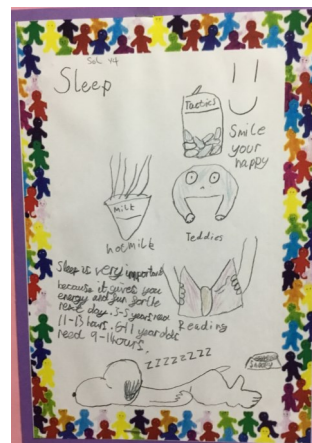 Sol Y4
Sleep
Tactics
Smile
your
happy
milk
hotmilk
Teddies
Sleep is very important
because it gives you
energy and fun for the
next day. 3-5 years need
11-13 hours. 6-11 year olds
need 9-11 hours.
Reading
ZZZZZZZZ